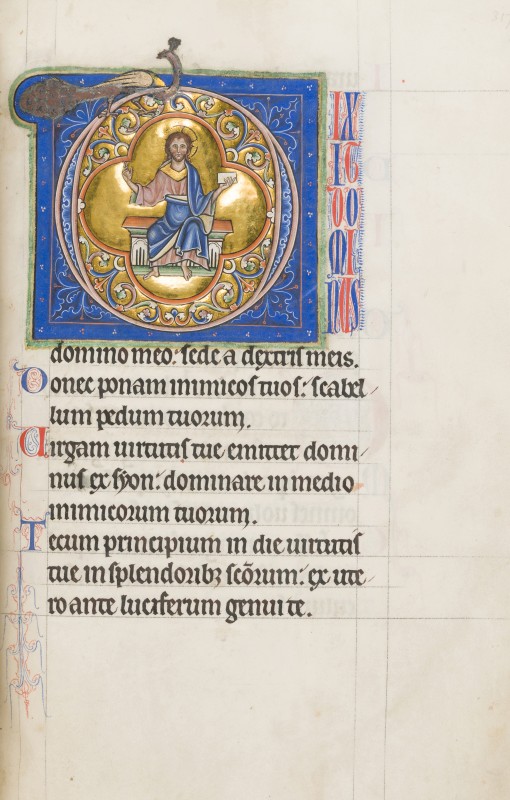 DIXIT DOMINUS
domino meo: sede a dextris meis.
Donec ponam inimicos tuos: scabel/
lum pedum tuorum.
Uirgam uirtutis tue emittet domi/
nus ex syon: dominare in medio
inimicorum tuorum.
Tecum principium in die uirtutis
tue in splendoribꝫ sc̄orum: ex ute/
ro ante luciferum genui te.